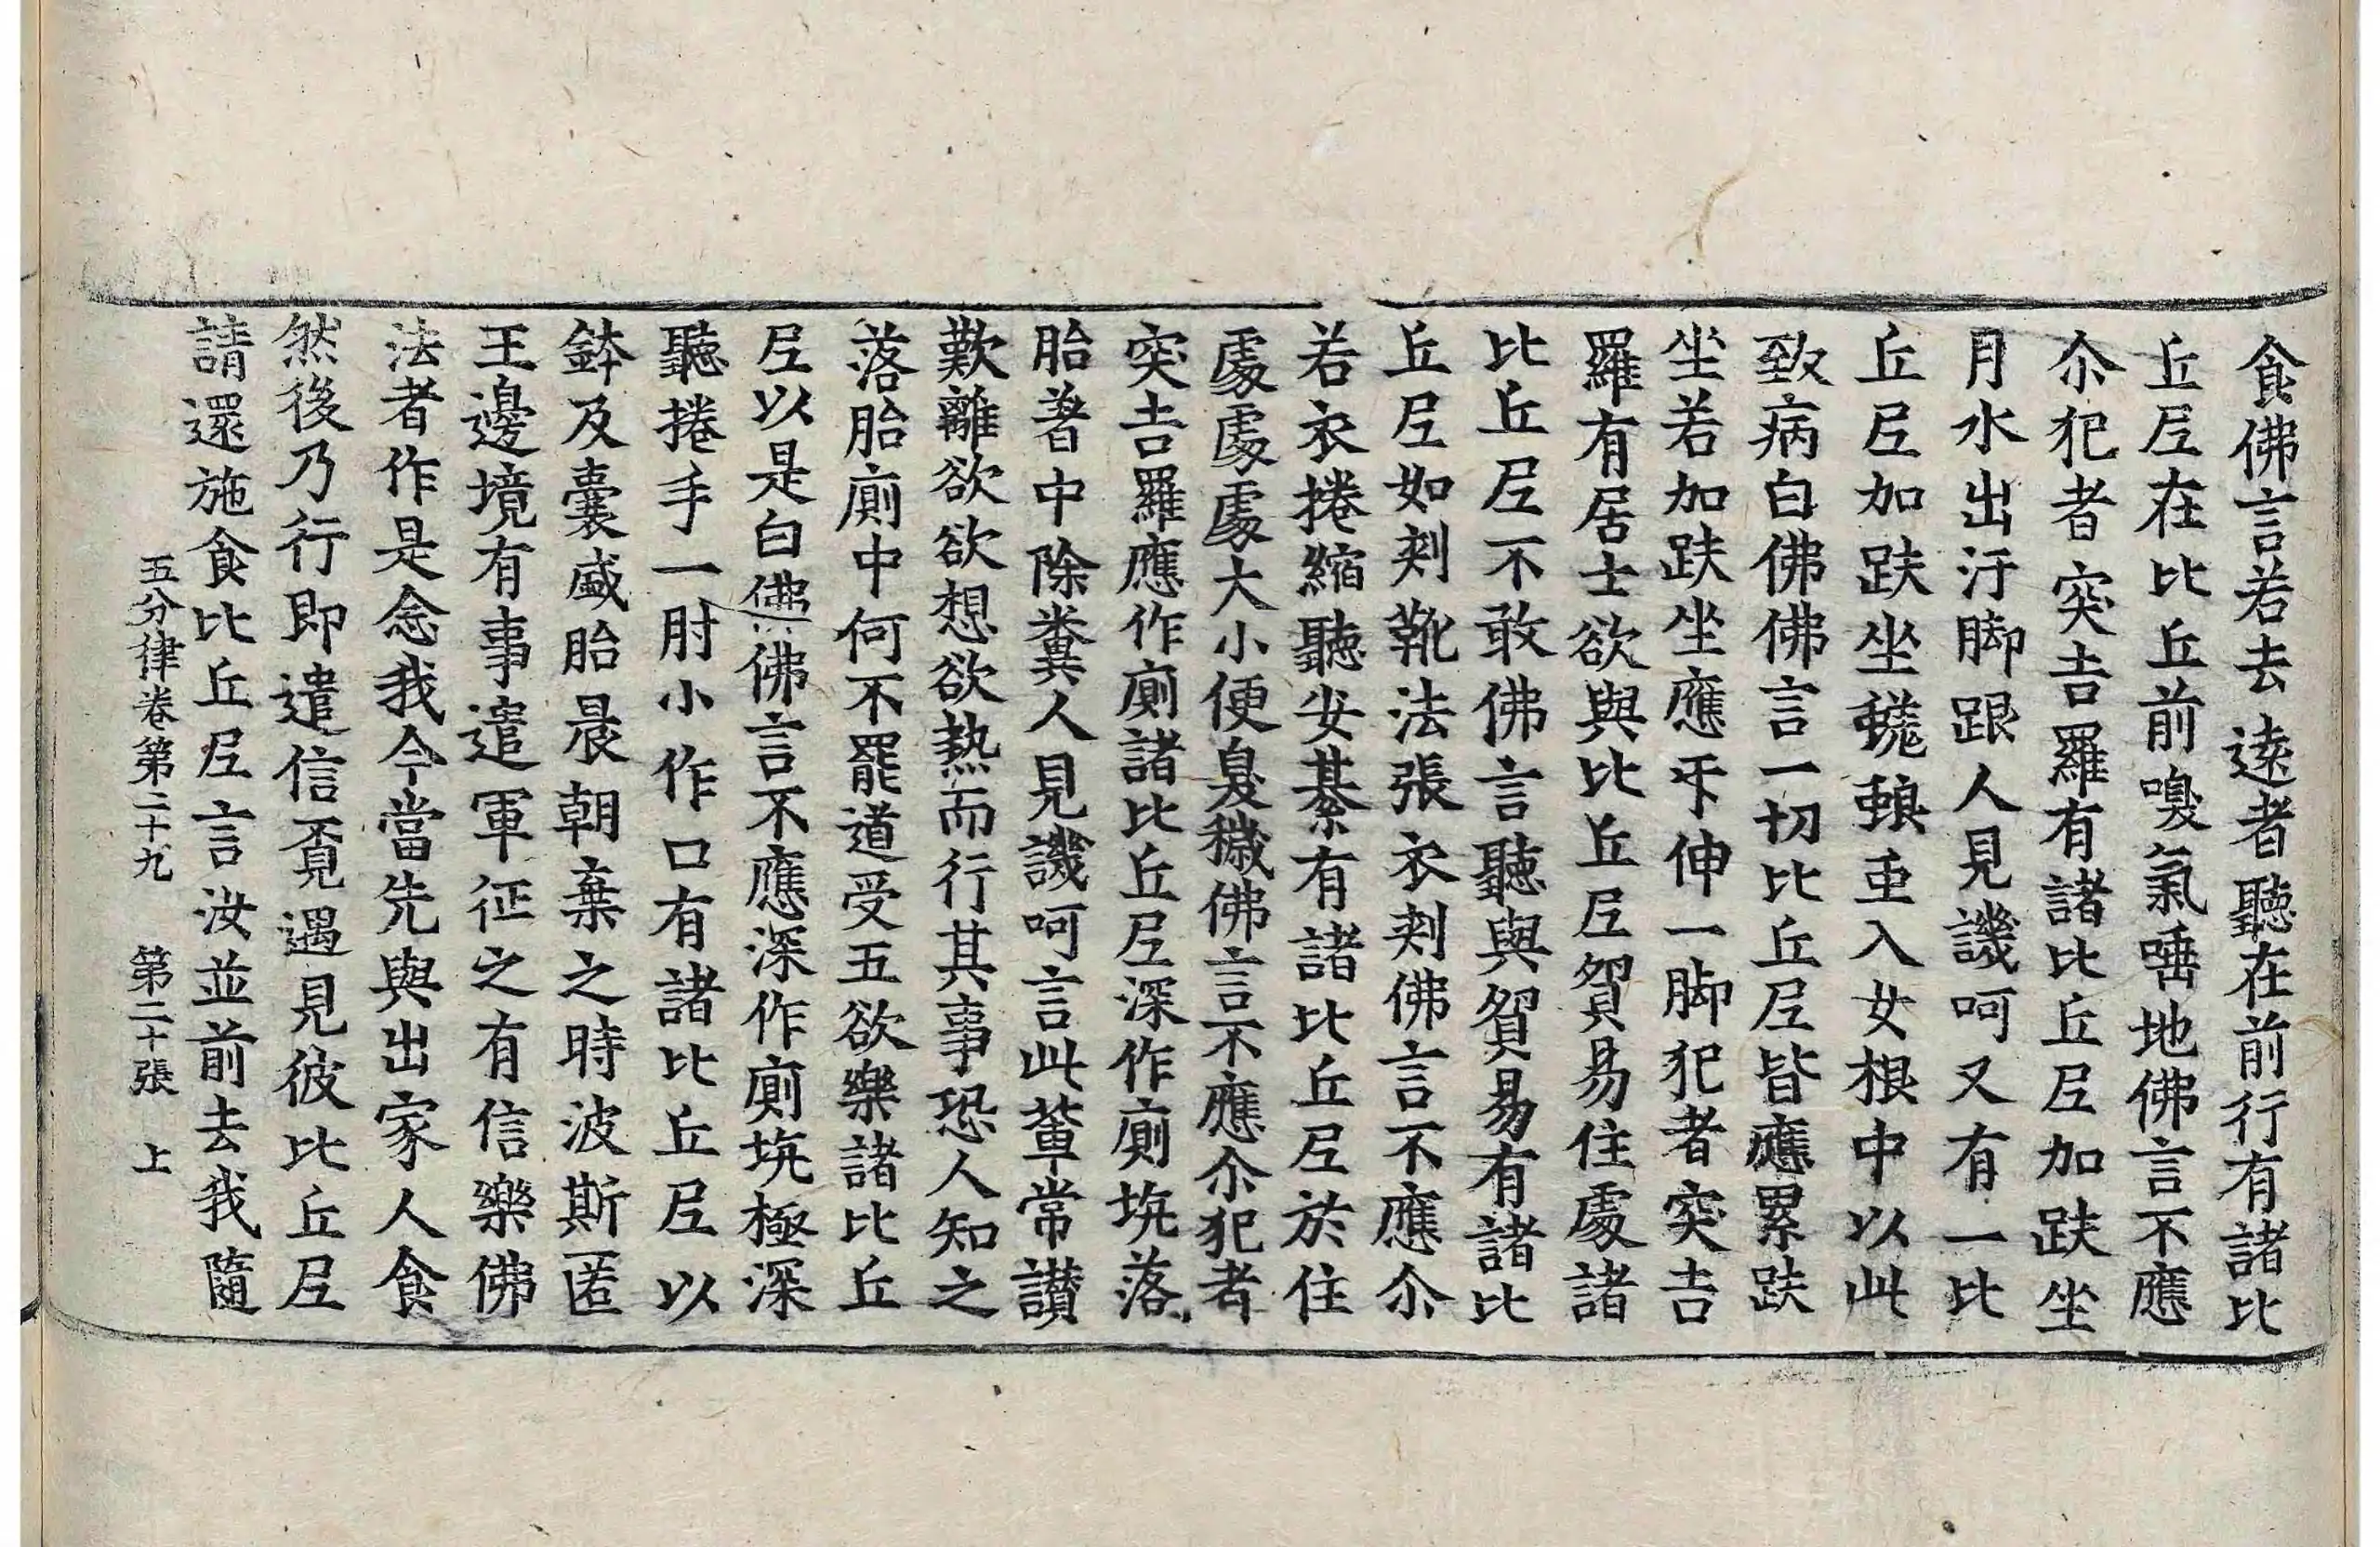 食佛言若去遠者聽在前行有諸比
丘尼在比丘前嗅氣唾地佛言不應
尒犯者突吉羅有諸比丘尼加趺坐
月水出汙脚跟人見譏呵又有一比
丘尼加趺坐虵入女根中以此
致病白佛佛言一切比丘尼皆應累趺
坐若加趺坐應伸一脚犯者突吉
羅有居士欲與比丘尼貿易住處諸
比丘尼不敢佛言聽與貿易有諸比
丘尼如刾靴法張衣刾佛言不應尒
若衣捲縮聽安綦有諸比丘尼於住
處處處大小便臭穢佛言不應尒犯者
突吉羅應作廁諸比丘尼深作廁坑落
胎著中除糞人見譏呵言此輩常讃
歎離欲欲想欲熱而行其事恐人知之
落胎廁中何不罷道受五欲樂諸比丘
尼以是白佛佛言不應深作廁坑極深
聽捲手一肘小作口有諸比丘尼以
鉢及囊盛胎晨朝棄之時波斯匿
王邊境有事遣軍征之有信樂佛
法者作是念我今當先與出家人食
然後乃行即遣信覔遇見彼比丘尼
請還施食比丘尼言汝並前去我隨
五分律卷第二十九　第二十張　上